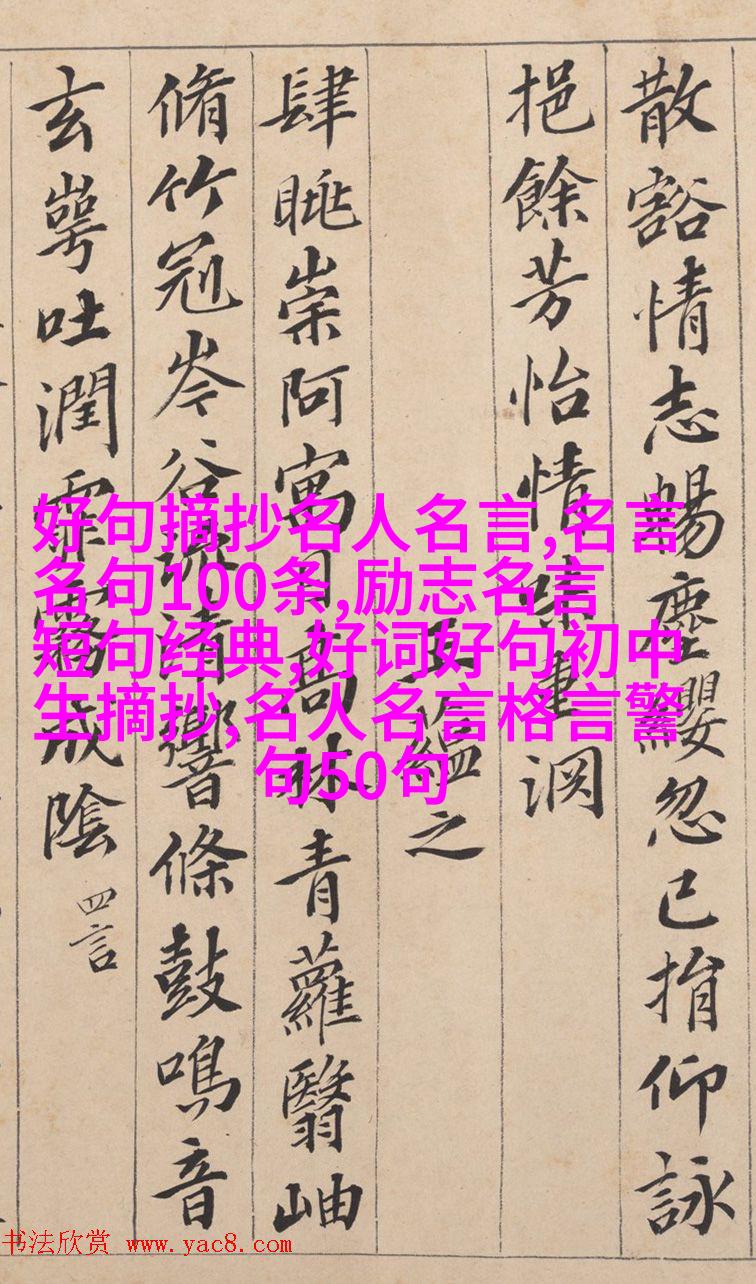 散豁情志暢塵纓忽已捐仰詠
挹餘芳怡情味重渊
王蘊之
肆眺崇阿寓目高林青蘿翳岫
脩竹冠岑谷流清響條鼓鳴音
玄崿吐潤霏霧成陰
四言
好句摘抄名人名言,名言
名句100条,励志名言
短句经典,好词好句初中
生摘抄,名人名言格言警
句50句
书法欣赏 www.yac8.com